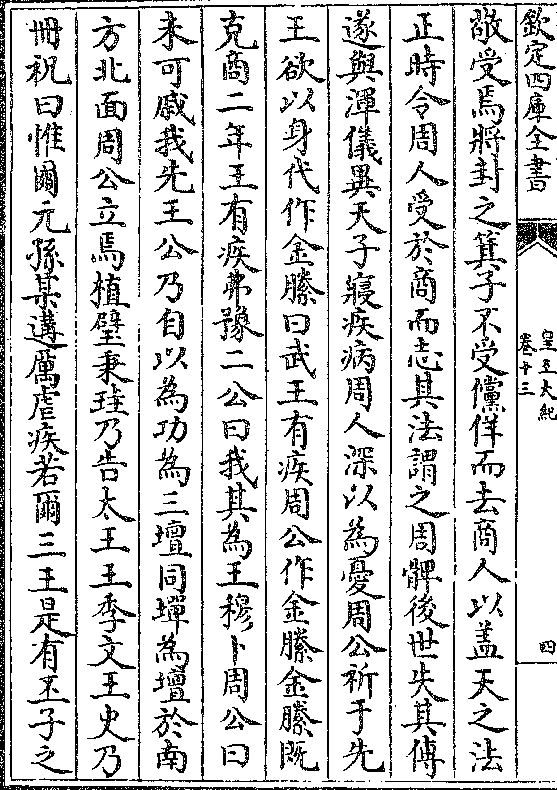 欽定四庫全書
皇王大紀
卷十三
四
敬受焉將封之箕子不受儻佯而去商人以蓋天之法
正時令周人受於商而志其法謂之周髀後世失其傳
遂與渾儀異天子寢疾病周人深以為憂周公祈于先
王欲以身代作金縢曰武王有疾周公作金縢金縢既
克商二年王有疾弗豫二公曰我其為王穆卜周公曰
未可戚我先王公乃自以為功為三壇同墠為壇於南
方北面周公立焉植璧秉珪乃告太王王季文王史乃
冊祝曰惟爾元孫某遘厲虐疾若爾三王是有丕子之